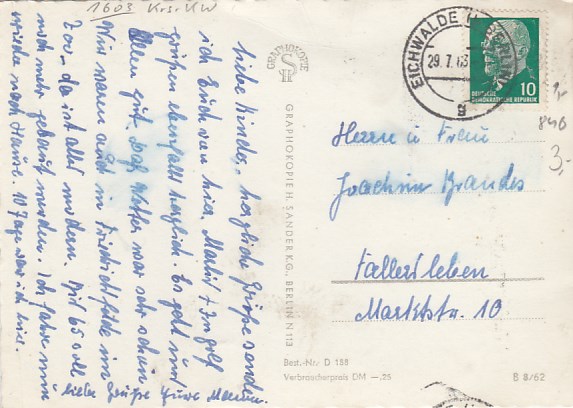 1603 Krs. KW
Liebe Kinder, herzliche Grüße sende
ich Euch von hier, Mahs + Ingolf
grüßen ebenfalls herzlich. Es geht uns
allen gut, das Wetter war sehr schön
Wir waren auch in Friedrichsfelde im
Zoo, da ist alles modern. Bis 65 soll
noch mehr gebaut werden. Ich fahre nun
wieder nach Hause. 10 Tage war ich hier.
liebe Grüße Eure
GRAPHOKOPIE
H S
GRAPHOKOPIE H. SANDER K.G., BERLIN N 113
EICHWALDE
BERLIN
29.7.63
g
DEUTSCHE
DEMOKRATISCHE REPUBLIK
10
846
3,-
Herrn u. Frau
Joachim Brandes
Fallersleben
Marktstr. 10
Best.-Nr. D 188
Verbraucherpreis DM —,25
B 8/62